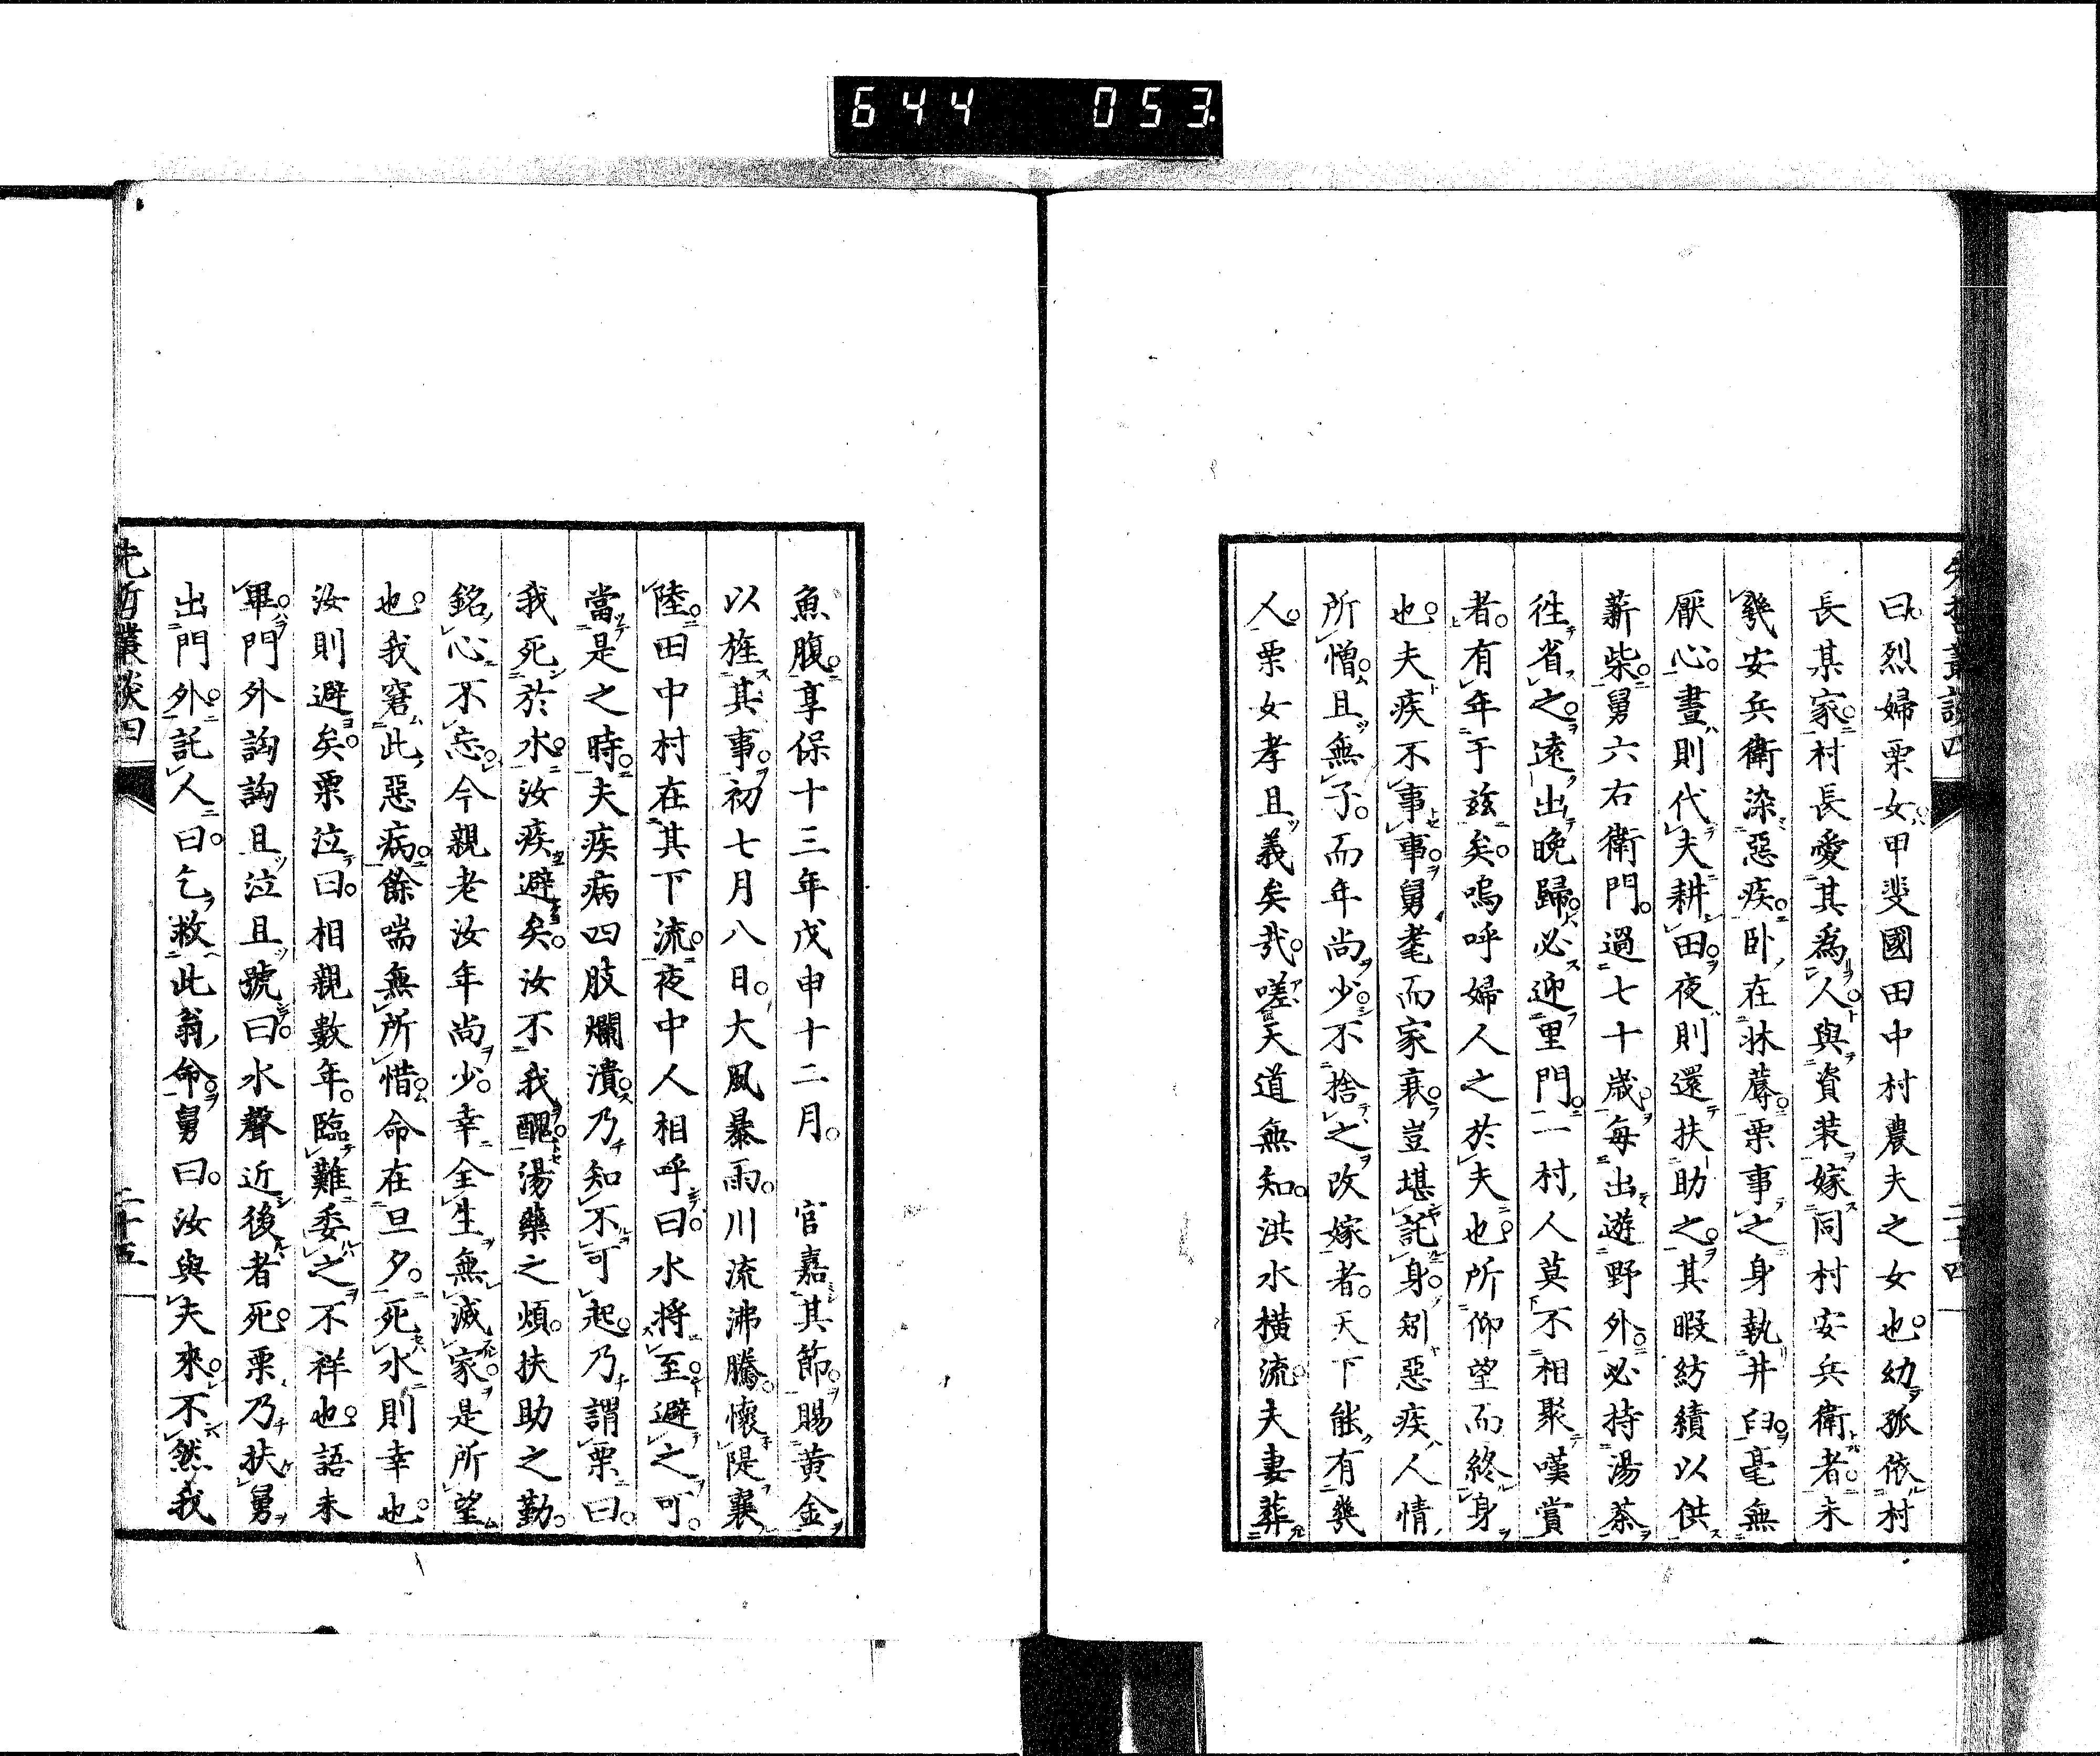 644 053
先哲叢談四 二十四
曰烈婦栗女甲斐國田中村農夫之女也。幼孤依村
長某家。村長愛其爲人。與資装嫁同村安兵衛者。未
幾安兵衛染惡疾。卧在牀蓐。栗事之身執井臼。毫無
厭心。晝則代夫耕田。夜則還扶助之。其暇紡績以供
薪柴。舅六右衛門。過七十歳。每出遊野外。必持湯茶
往省之。遠出晩歸。必迎里門。一村人莫不相聚嘆賞
者。有年于兹矣。嗚呼婦人之於夫也。所仰望而終身
也。夫疾不事事。舅耄而家衰。豈堪託身。矧惡疾人情
所憎。且無子。而年尚少。不捨之改嫁者。天下能有幾
人。栗女孝且義矣哉。嗟天道無知。洪水橫流。夫妻葬
魚腹。享保十三年戊申十二月。 官嘉其節。賜黄金
以旌其事。初七月八日。大風暴雨。川流沸騰。懷隄襄
陸。田中村在其下流。夜中人相呼曰。水將至。避之可。
當是之時。夫疾病四肢爛潰。乃知不可起。乃謂栗曰。
我死於水。汝疾避矣。汝不我醜。湯藥之煩。扶助之勤。
銘心不忘。今親老汝年尚少。幸全生無滅家。是所望
也。我窘此惡病。餘喘無所惜。命在旦夕。死水則幸也。
汝則避矣。栗泣曰。相親數年。臨難委之不祥也。語未
畢。門外訩訩且泣且號曰。水聲近。後者死。栗乃扶舅
出門外。託人曰。乞救此翁命。舅曰。汝與夫來。不然我
先哲叢談四 二十五